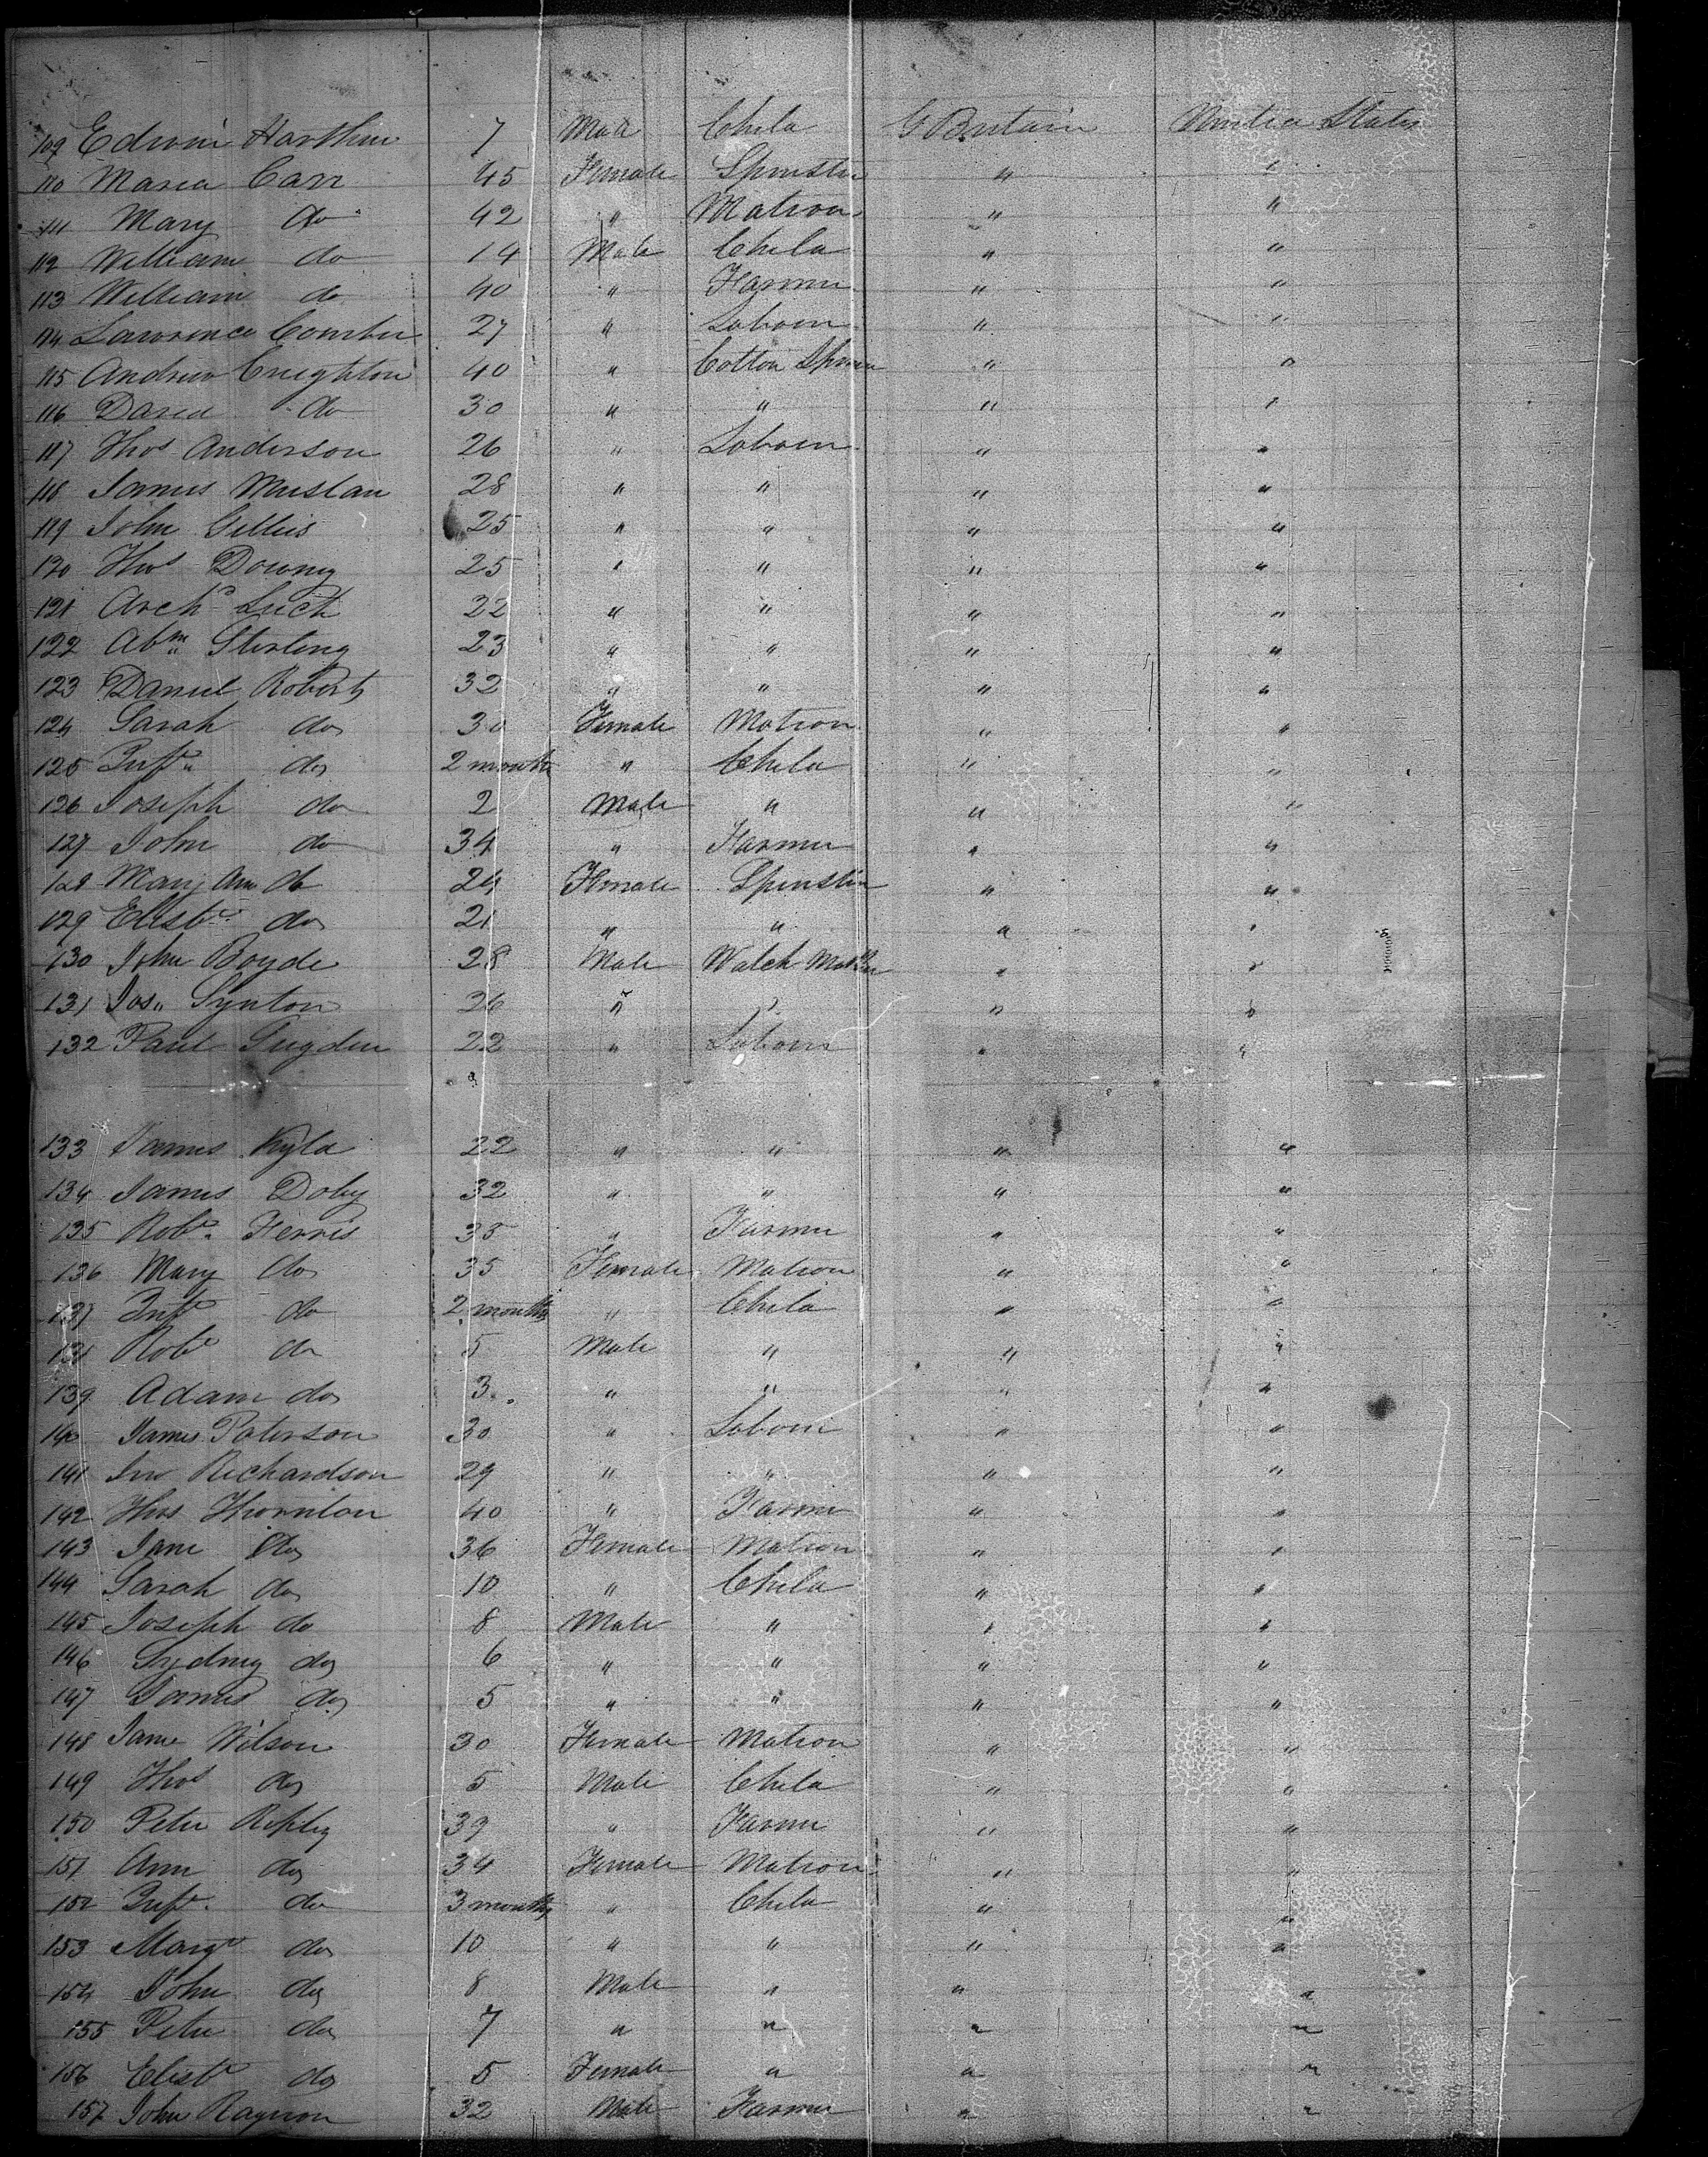 109 Edwin 7 Male Child G Britain United States
110 Maria Carr 45 Female Spinster " "
111 Mary do 42 " Matron " "
112 William do 14 Male Child " "
113 William do 40 " Farmer " "
114 Lawrence 27 " Laborer " "
115 Andrew Creighton 40 " Cotton Spinner " "
116 David do 30 " " " "
117 Thos Anderson 26 " Laborer " "
118 James 28 " " " "
119 John Gillies 25 " " " "
120 Thos Downey 25 " " " "
121 Archd 22 " " " "
122 Abm Sterling 23 " " " "
123 Daniel Roberts 32 " " " "
124 Sarah do 30 Female Matron " "
125 Inft do 2 months " Child " "
126 Joseph do 2 Male " " "
127 John do 34 " Farmer " "
128 Mary Ann do 24 Female Spinster " "
129 Elisbt do 21 " " " "
130 John Boyde 28 Male Watch Maker " "
131 Jas Synton 26 " " "
132 Paul Sugden 22 " Laborer " "
133 James Kyle 22 " " " "
134 James Doby 32 " " " "
135 Robt Ferris 35 " Farmer " "
136 Mary do 35 Female Matron " "
137 Inft do 2 months " Child " "
138 Robt do 5 Male " " "
139 Adam do 3 " " " "
140 James Paterson 30 " Laborer " "
141 Jno Richardson 29 " " " "
142 Thos Thornton 40 " Farmer " "
143 Jane do 36 Female Matron " "
144 Sarah do 10 " Child " "
145 Joseph do 8 Male " " "
146 Sydney do 6 " " " "
147 James do 5 " " " "
148 Jane Wilson 30 Female Matron " "
149 Thos do 5 Male Child " "
150 Peter Ripley 39 " Farmer " "
151 Ann do 34 Female Matron " "
152 Inft do 3 months " Child " "
153 Margt do 10 " " " "
154 John do 8 Male " " "
155 Peter do 7 " " " "
156 Elisbt do 5 Female " " "
157 John 32 Male Farmer " "